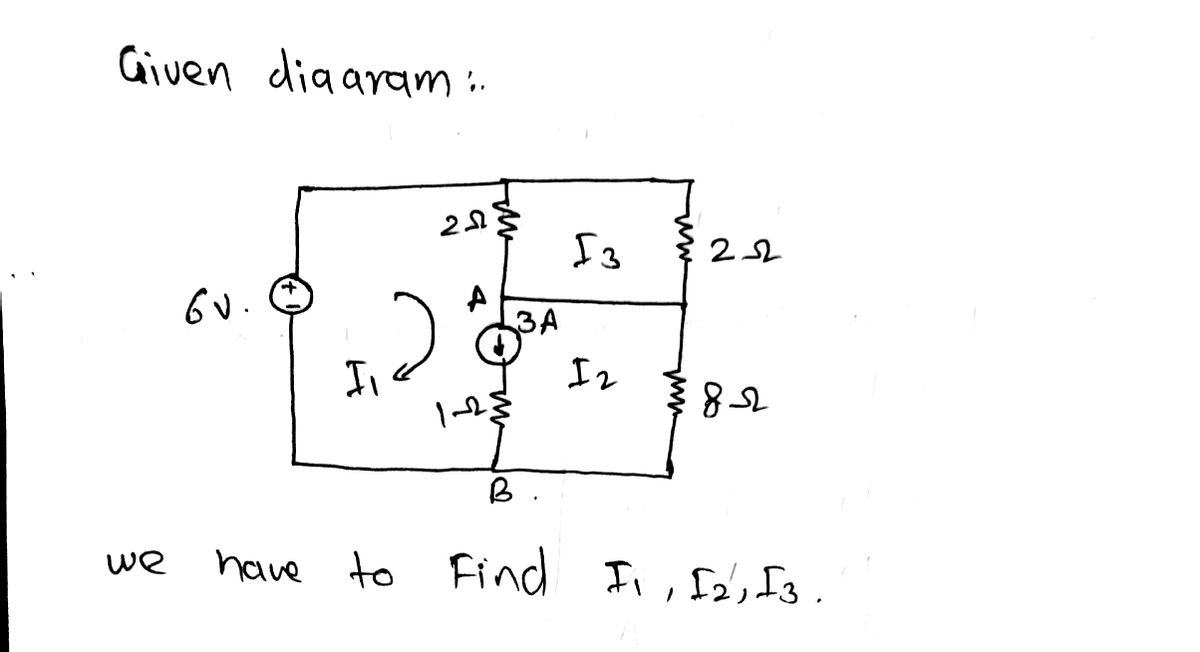 Given diagram :.
2Ω
I3
2Ω
6V.
+
-
A
3A
I1
I2
1Ω
8Ω
B.
we have to Find I1, I2, I3.